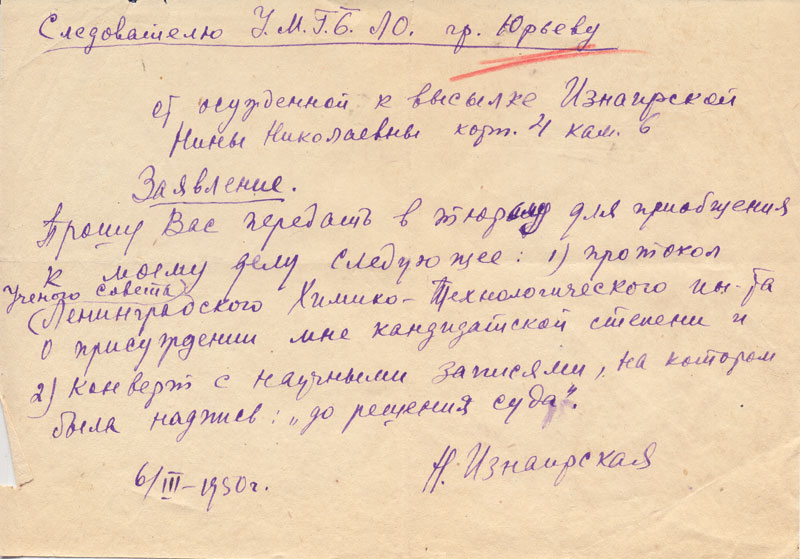 Следователю У.М.Г.Б. ЛО. гр. Юрьеву
от осужденной к высылке Изнаирской
Нины Николаевны корп. 4 кам. 6
Заявление.
Прошу Вас передать в тюрьму для приобщения
к моему делу следующее: 1) протокол
Ученого Совета
(Ленинградского Химико-Технологического ин-та
о присуждении мне кандидатской степени и
2) Конверт с научными записями, на котором
была надпись: „до решения суда".
6/III-1950г.
Н. Изнаирская